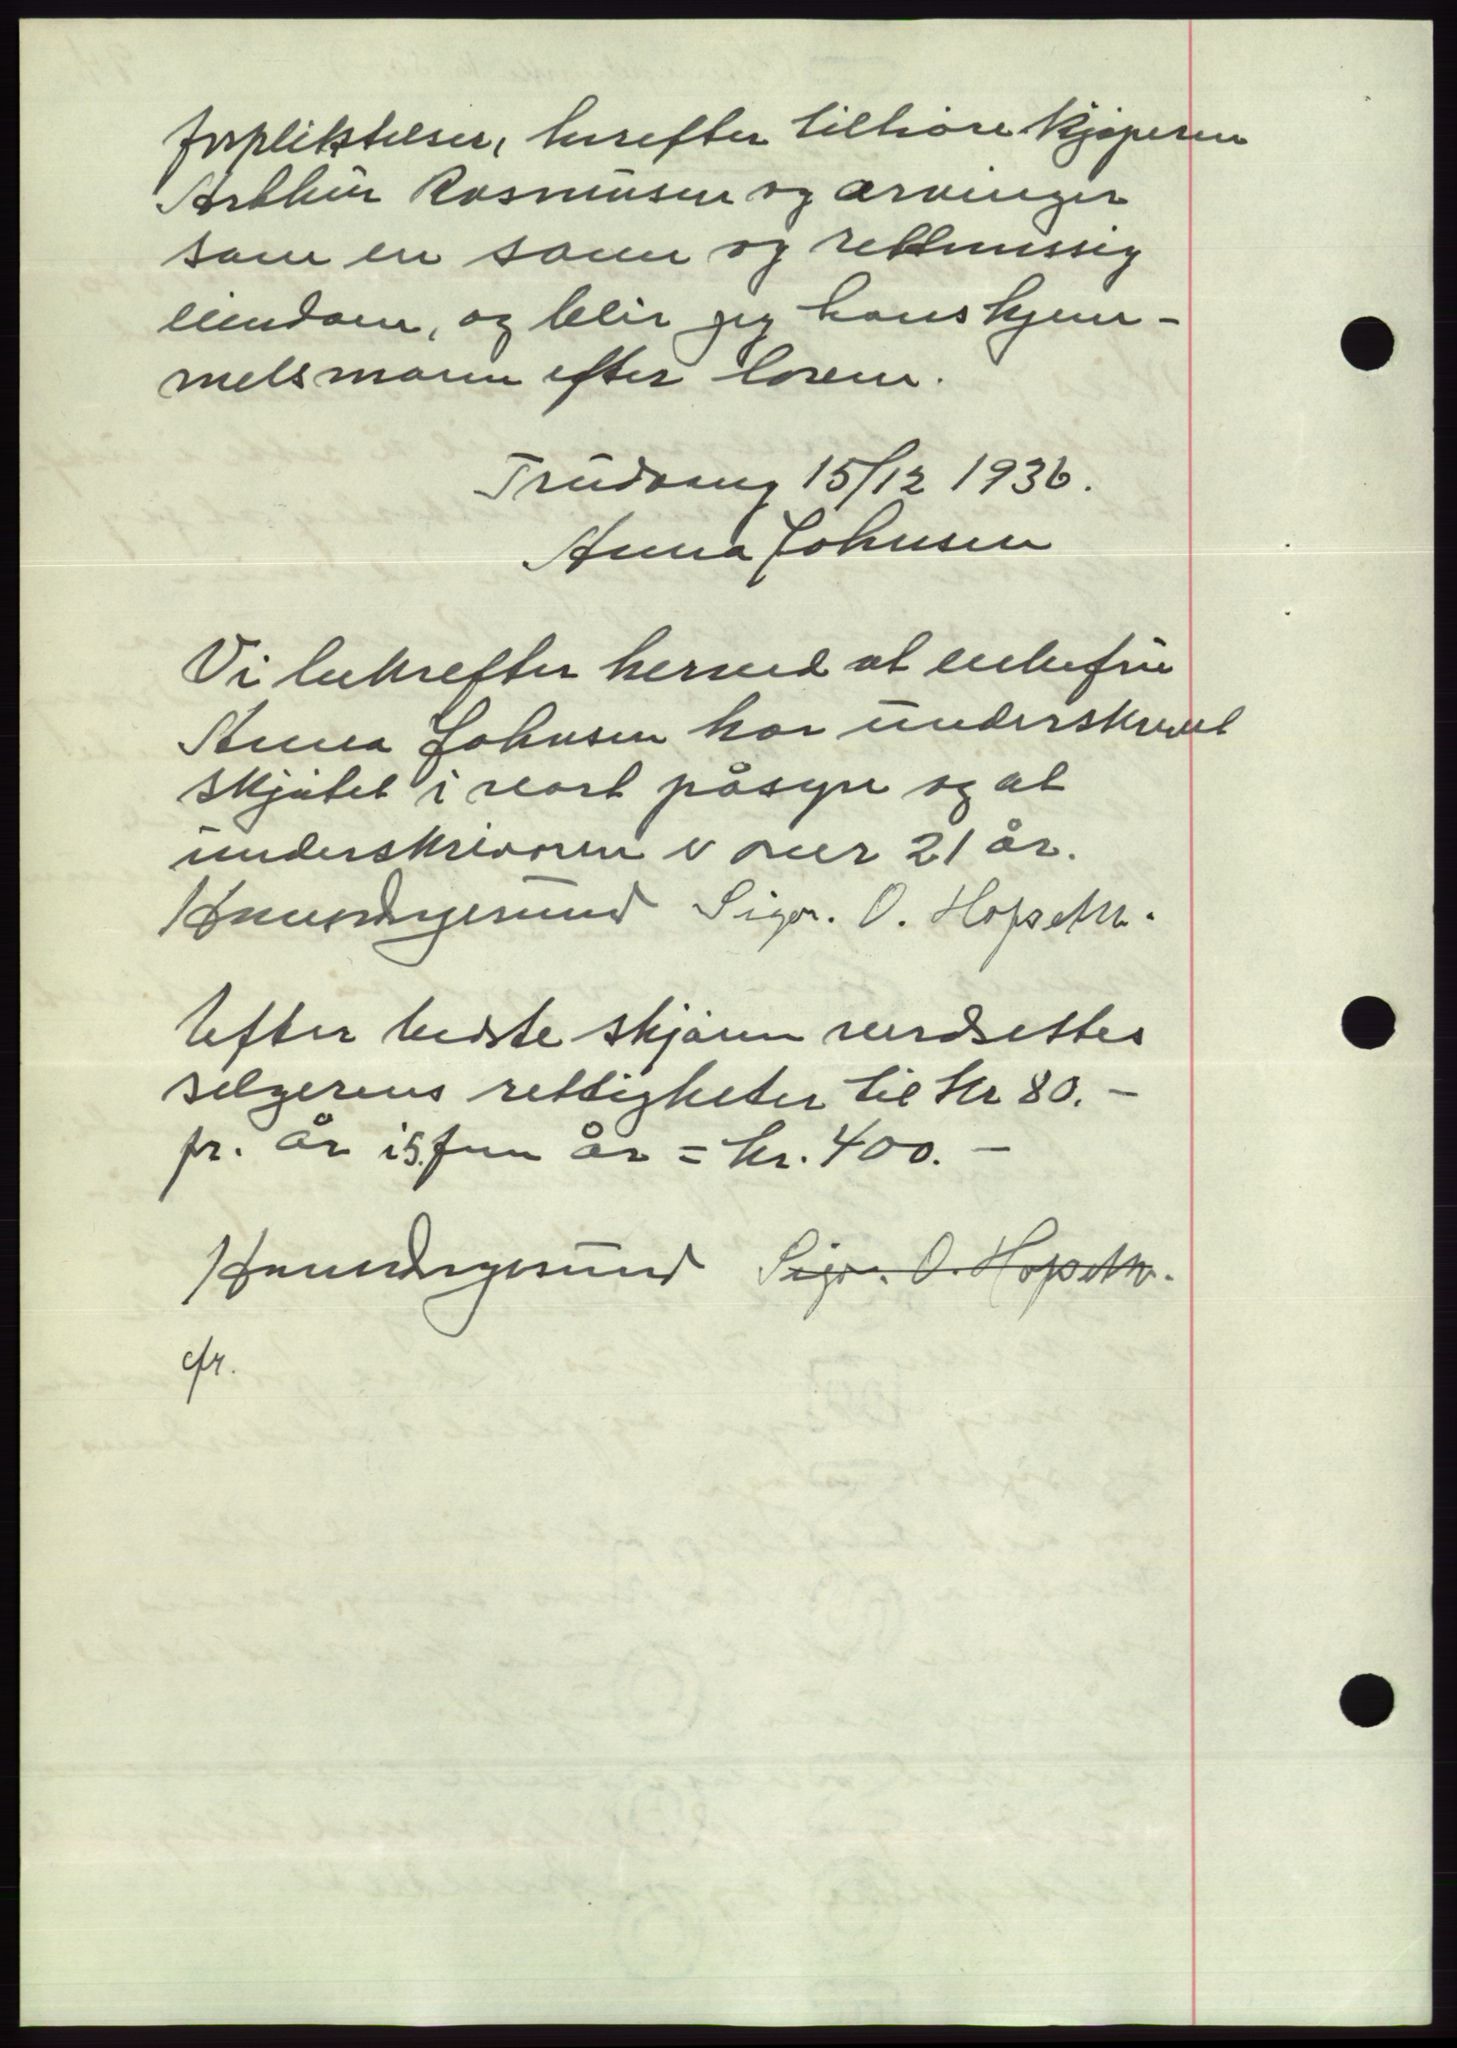 forpliktelser, herefter tilhöre kjøperen
Arthur Rasmusen og arvinger
som en sann og rettmessig
eiendom, og blir jeg hans hjem-
melsmann efter loven.
Trudvang 15/12 1936.
Anna Johnsen
Vi bekrefter herved at enkefru
Anna Johnsen har underskrevet
skjötet i vort påsyn og at
underskriveren er over 21 år.
Knut Angesund Sigv. O. Hopseth.
Efter bedste skjönn verdsettes
selgerens rettigheter til kr 80.-
pr. år i 5. fem år = kr. 400.-
Knut Angesund Sigv. O. Hopseth.
cfr.